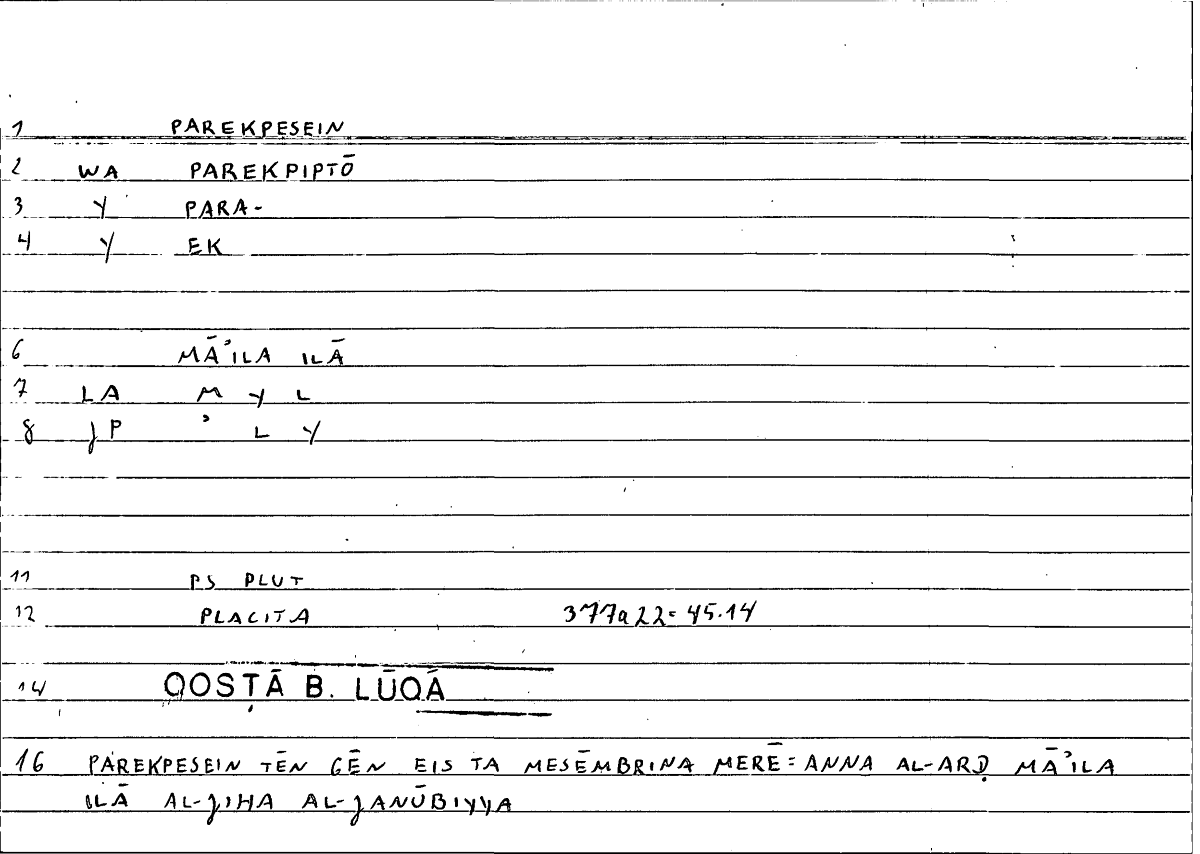 1 PAREKPESEIN
2 WA PAREKPIPTŌ
3 Y PARA-
4 Y EK
6 MĀʾILA ILĀ
7 LA M Y L
8 JP ʾ L Y
11 PS PLUT
12 PLACITA 377a22=45.14
14 QOSṬĀ B. LŪQĀ
16 PAREKPESEIN TĒN GĒN EIS TA MESĒMBRINA MERĒ = ANNA AL-ARḌ MĀʾILA
ILĀ AL-JIHA AL-JANŪBIYYA